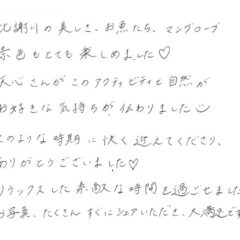 比謝川の美しさ、お魚たち、マングローブ
景色もとても楽しめました♡
さんがこのアクティビティと自然が
お好きな気持ちが伝わりました
このような時期に快く迎えてくださり、
ありがとうございました!♡
リラックスした素敵な時間を過ごせました
お写真、たくさんすぐにシェアいただき、大満足です